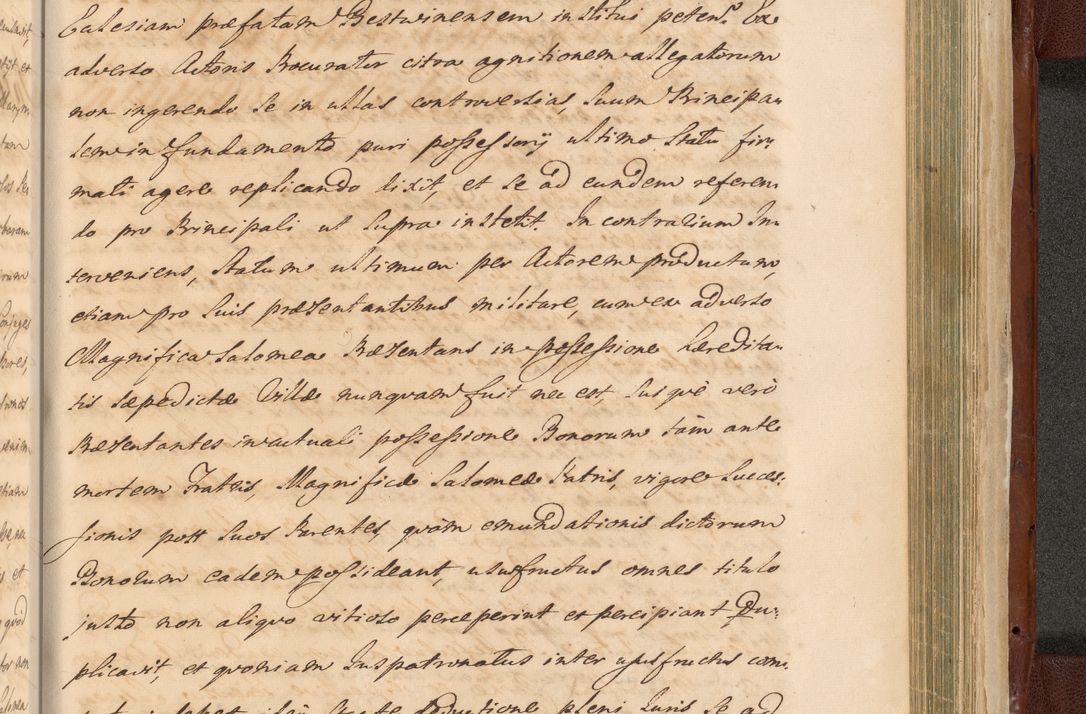 Ecclesiam præfatam Bestwinensem institui peten. Ex
adverso Actoris Procurator citra agnitionem allegatorum
non ingerendo se in ullas controversias, suum Principa-
lem in fundamento puri possessorij ultimo statu fir-
mati agere replicando dixit, et se ad eundem referen-
do pro Principali ut supra institit. In contrarium In-
terveniens, statum ultimum per Actorem productum,
etiam pro suis præsentantibus militare, cum ex adverso
Magnifica Salomea Præsentans in possessione hæredita-
tis sæpedictæ Villæ nunquam fuit nec est, suique verò
Præsentantes in actuali possessione Bonorum tàm ante
mortem Fratris, Magnificæ Salomeæ Patris, vigore succes-
sionis post suos Parentes, quàm emundationis dictorum
Bonorum eadem possideant, ususfructus omnes titulo
justo non aliquo vitioso perceperint et percipiant Du-
plicavit, et quoniam Juspatronatus inter ususfructus com-
deductione pleni Juris se ad